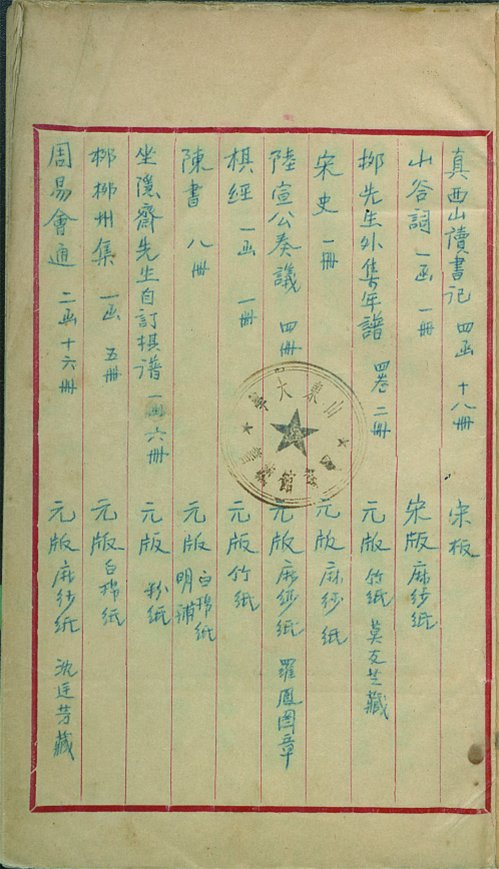 真西山讀書记 四函 十八冊 宋板
山谷詞 一函 一冊 宋版 麻纱纸
柳先生外集年譜 四卷 二冊 元版 竹纸 莫友芝藏
宋史 一冊 元版 麻纱纸
陸宣公奏議 四冊 元版 麻纱纸 羅鳳圖章
棋經 一函 一冊 元版 竹纸
陳書 八冊 元版 白棉纸 明補
坐隱齋先生自訂棋谱 一函 六冊 元版 粉纸
柳柳州集 一函 五冊 元版 白棉纸
周易會通 二函 十六冊 元版 麻纱纸 沈廷芳藏
山東大學
館